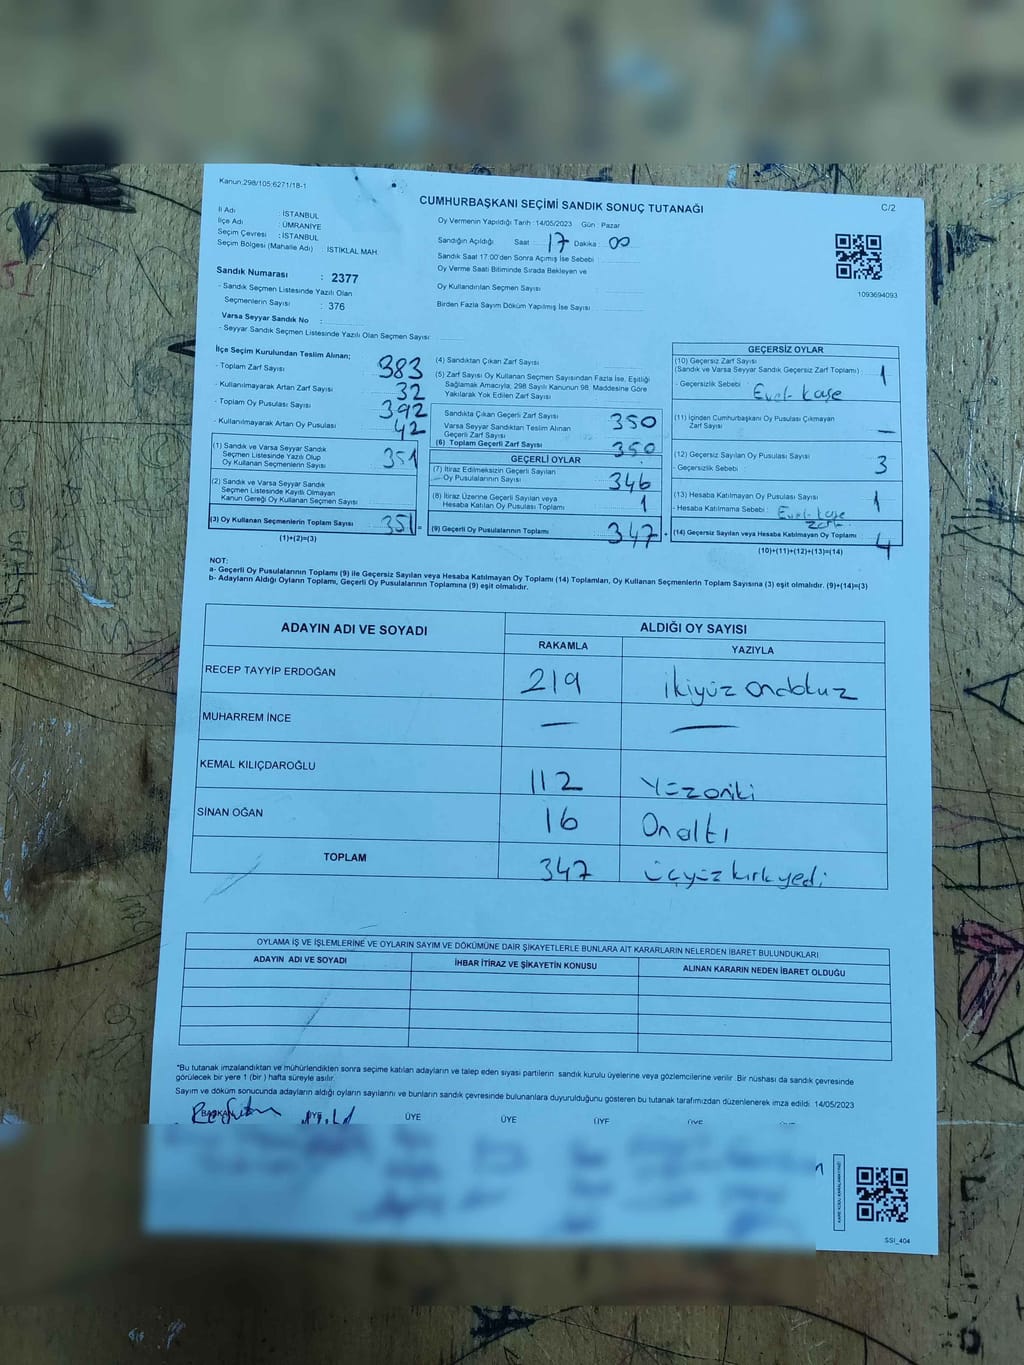 Kanun.298/105;6271/18-1
CUMHURBAŞKANI SEÇİMİ SANDIK SONUÇ TUTANAĞI
C/2
İl Adı : İSTANBUL
İlçe Adı : ÜMRANİYE
Seçim Çevresi : İSTANBUL
Seçim Bölgesi (Mahalle Adı) : İSTİKLAL MAH.
Oy Vermenin Yapıldığı Tarih : 14/05/2023 Gün : Pazar
Sandığın Açıldığı Saat 17 Dakika : 00
Sandık Saat 17:00'den Sonra Açımış İse Sebebi :
Oy Verme Saati Bitiminde Sırada Bekleyen ve
Oy Kullandırılan Seçmen Sayısı :
Birden Fazla Sayım Döküm Yapılmış İse Sayısı :
1093694093
Sandık Numarası : 2377
- Sandık Seçmen Listesinde Yazılı Olan
Seçmenlerin Sayısı : 376
Varsa Seyyar Sandık No :
- Seyyar Sandık Seçmen Listesinde Yazılı Olan Seçmen Sayısı:
İlçe Seçim Kurulundan Teslim Alınan;
- Toplam Zarf Sayısı 383
- Kullanılmayarak Artan Zarf Sayısı 32
- Toplam Oy Pusulası Sayısı 392
- Kullanılmayarak Artan Oy Pusulası 42
(1) Sandık ve Varsa Seyyar Sandık
Seçmen Listesinde Yazılı Olup
Oy Kullanan Seçmenlerin Sayısı 351
(2) Sandık ve Varsa Seyyar Sandık
Seçmen Listesinde Kayıtlı Olmayan
Kanun Gereği Oy Kullanan Seçmen Sayısı
(3) Oy Kullanan Seçmenlerin Toplam Sayısı 351 =
(1)+(2)=(3)
(4) Sandıktan Çıkan Zarf Sayısı
(5) Zarf Sayısı Oy Kullanan Seçmen Sayısından Fazla İse, Eşitliği
Sağlamak Amacıyla, 298 Sayılı Kanunun 98. Maddesine Göre
Yakılarak Yok Edilen Zarf Sayısı
Sandıkta Çıkan Geçerli Zarf Sayısı 350
Varsa Seyyar Sandıktan Teslim Alınan
Geçerli Zarf Sayısı
(6) Toplam Geçerli Zarf Sayısı 350
GEÇERLİ OYLAR
(7) İtiraz Edilmeksizin Geçerli Sayılan
Oy Pusulalarının Sayısı 346
(8) İtiraz Üzerine Geçerli Sayılan veya
Hesaba Katılan Oy Pusulası Toplamı 1
(9) Geçerli Oy Pusulalarının Toplamı 347 +
GEÇERSİZ OYLAR
(10) Geçersiz Zarf Sayısı
(Sandık ve Varsa Seyyar Sandık Geçersiz Zarf Toplamı) 1
- Geçersizlik Sebebi : Evet kaşe
(11) İçinden Cumhurbaşkanı Oy Pusulası Çıkmayan
Zarf Sayısı —
(12) Geçersiz Sayılan Oy Pusulası Sayısı 3
- Geçersizlik Sebebi :
(13) Hesaba Katılmayan Oy Pusulası Sayısı 1
- Hesaba Katılmama Sebebi : Evet kaşe
zarf
(14) Geçersiz Sayılan veya Hesaba Katılmayan Oy Toplamı 4
(10)+(11)+(12)+(13)=(14)
NOT:
a- Geçerli Oy Pusulalarının Toplamı (9) ile Geçersiz Sayılan veya Hesaba Katılmayan Oy Toplamı (14) Toplamları, Oy Kullanan Seçmenlerin Toplam Sayısına (3) eşit olmalıdır. (9)+(14)=(3)
b- Adayların Aldığı Oyların Toplamı, Geçerli Oy Pusulalarının Toplamına (9) eşit olmalıdır.
ADAYIN ADI VE SOYADI ALDIĞI OY SAYISI
RAKAMLA YAZIYLA
RECEP TAYYİP ERDOĞAN 219 ikiyüz ondokuz
MUHARREM İNCE — —
KEMAL KILIÇDAROĞLU 112 Yüzoniki
SİNAN OĞAN 16 Onaltı
TOPLAM 347 üçyüz kırkyedi
OYLAMA İŞ VE İŞLEMLERİNE VE OYLARIN SAYIM VE DÖKÜMÜNE DAİR ŞİKAYETLERLE BUNLARA AİT KARARLARIN NELERDEN İBARET BULUNDUKLARI
ADAYIN ADI VE SOYADI İHBAR İTİRAZ VE ŞİKAYETİN KONUSU ALINAN KARARIN NEDEN İBARET OLDUĞU
"Bu tutanak imzalandıktan ve mühürlendikten sonra seçime katılan adayların ve talep eden siyasi partilerin sandık kurulu üyelerine veya gözlemcilerine verilir. Bir nüshası da sandık çevresinde
görülecek bir yere 1 (bir ) hafta süreyle asılır.
Sayım ve döküm sonucunda adayların aldığı oyların sayılarını ve bunların sandık çevresinde bulunanlara duyurulduğunu gösteren bu tutanak tarafımızdan düzenlenerek imza edildi. 14/05/2023
BAŞKAN ÜYE ÜYE ÜYE ÜYE ÜYE
SSI_404